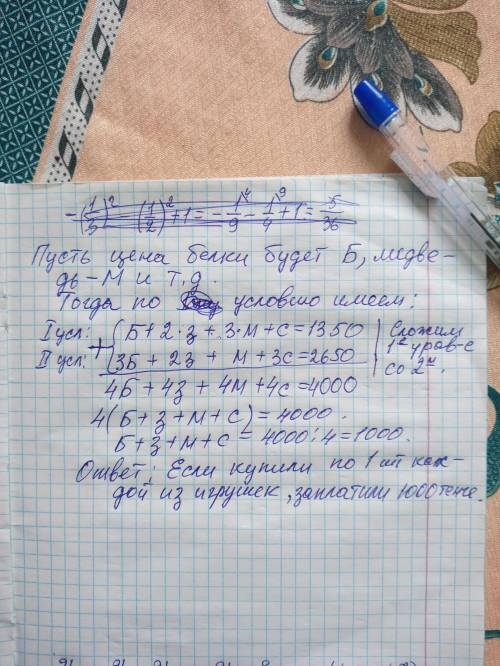 -(1/5)² (1/2)²+1 = -1/9 - 1/4 + 1 = 5/36
Пусть цена белки будет Б, медве-
дь-М и т.д.
Тогда по условию имеем:
I усл: Б+2·з+3·М+с=1350 Сложим
II усл: + 3Б+2з+М+3с=2650 1е урав-е
со 2м.
4Б+4з+4М+4с=4000
4(Б+з+М+с)=4000.
Б+з+М+с=4000:4=1000.
Ответ: Если купили по 1 шт каж-
дой из игрушек, заплатили 1000 тенге.